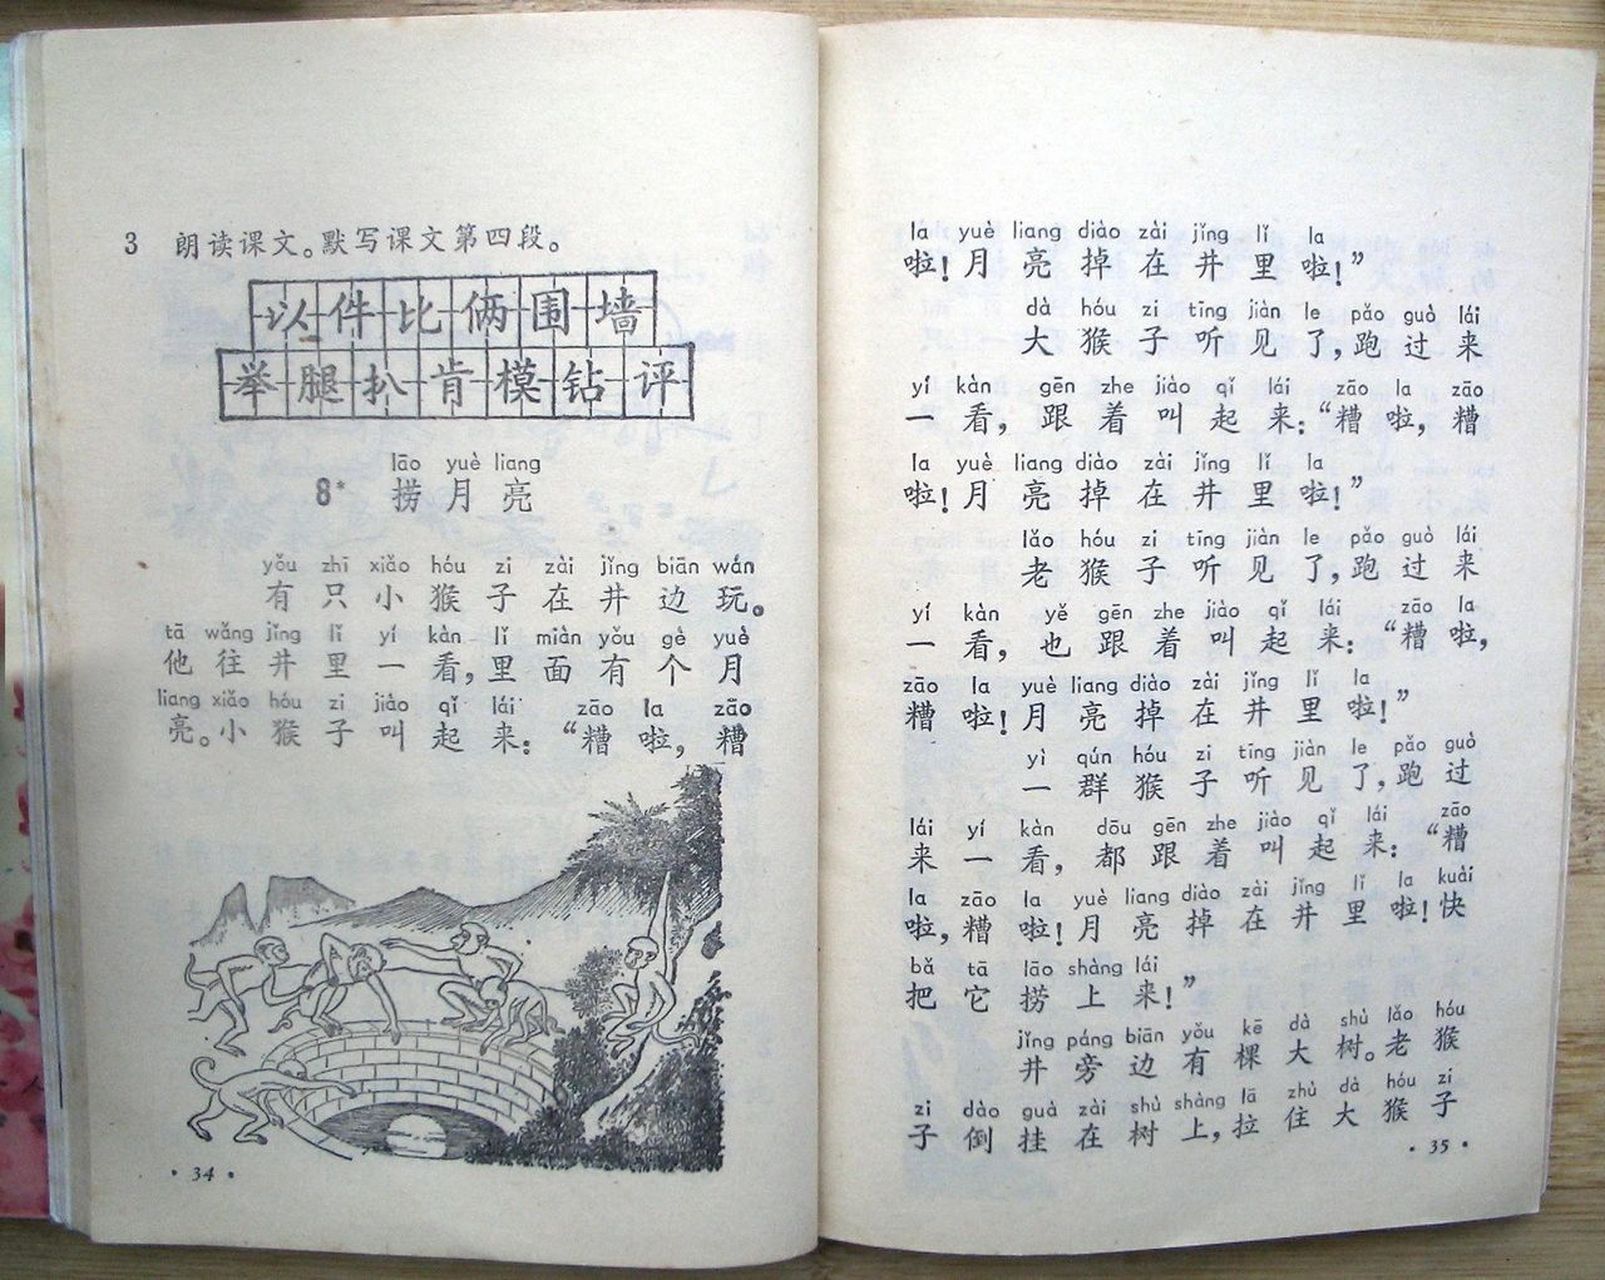 3 朗读课文。默写课文第四段。
以件比俩围墙
举腿扒肯模钻评
lāo yuè liang
8* 捞月亮
yǒu zhī xiǎo hóu zi zài jǐng biān wán
有只小猴子在井边玩。
tā wǎng jǐng lǐ yí kàn lǐ miàn yǒu gè yuè
他往井里一看，里面有个月
liang xiǎo hóu zi jiào qǐ lái zāo la zāo
亮。小猴子叫起来：“糟啦，糟
·34·
la yuè liang diào zài jǐng lǐ la
啦！月亮掉在井里啦！”
dà hóu zi tīng jiàn le pǎo guò lái
大猴子听见了，跑过来
yí kàn gēn zhe jiào qǐ lái zāo la zāo
一看，跟着叫起来：“糟啦，糟
la yuè liang diào zài jǐng lǐ la
啦！月亮掉在井里啦！”
lǎo hóu zi tīng jiàn le pǎo guò lái
老猴子听见了，跑过来
yí kàn yě gēn zhe jiào qǐ lái zāo la
一看，也跟着叫起来：“糟啦，
zāo la yuè liang diào zài jǐng lǐ la
糟啦！月亮掉在井里啦！”
yì qún hóu zi tīng jiàn le pǎo guò
一群猴子听见了，跑过
lái yí kàn dōu gēn zhe jiào qǐ lái zāo
来一看，都跟着叫起来：“糟
la zāo la yuè liang diào zài jǐng lǐ la kuài
啦，糟啦！月亮掉在井里啦！快
bǎ tā lāo shàng lái
把它捞上来！”
jǐng páng biān yǒu kē dà shù lǎo hóu
井旁边有棵大树。老猴
zi dào guà zài shù shàng lā zhù dà hóu zi
子倒挂在树上，拉住大猴子
·35·